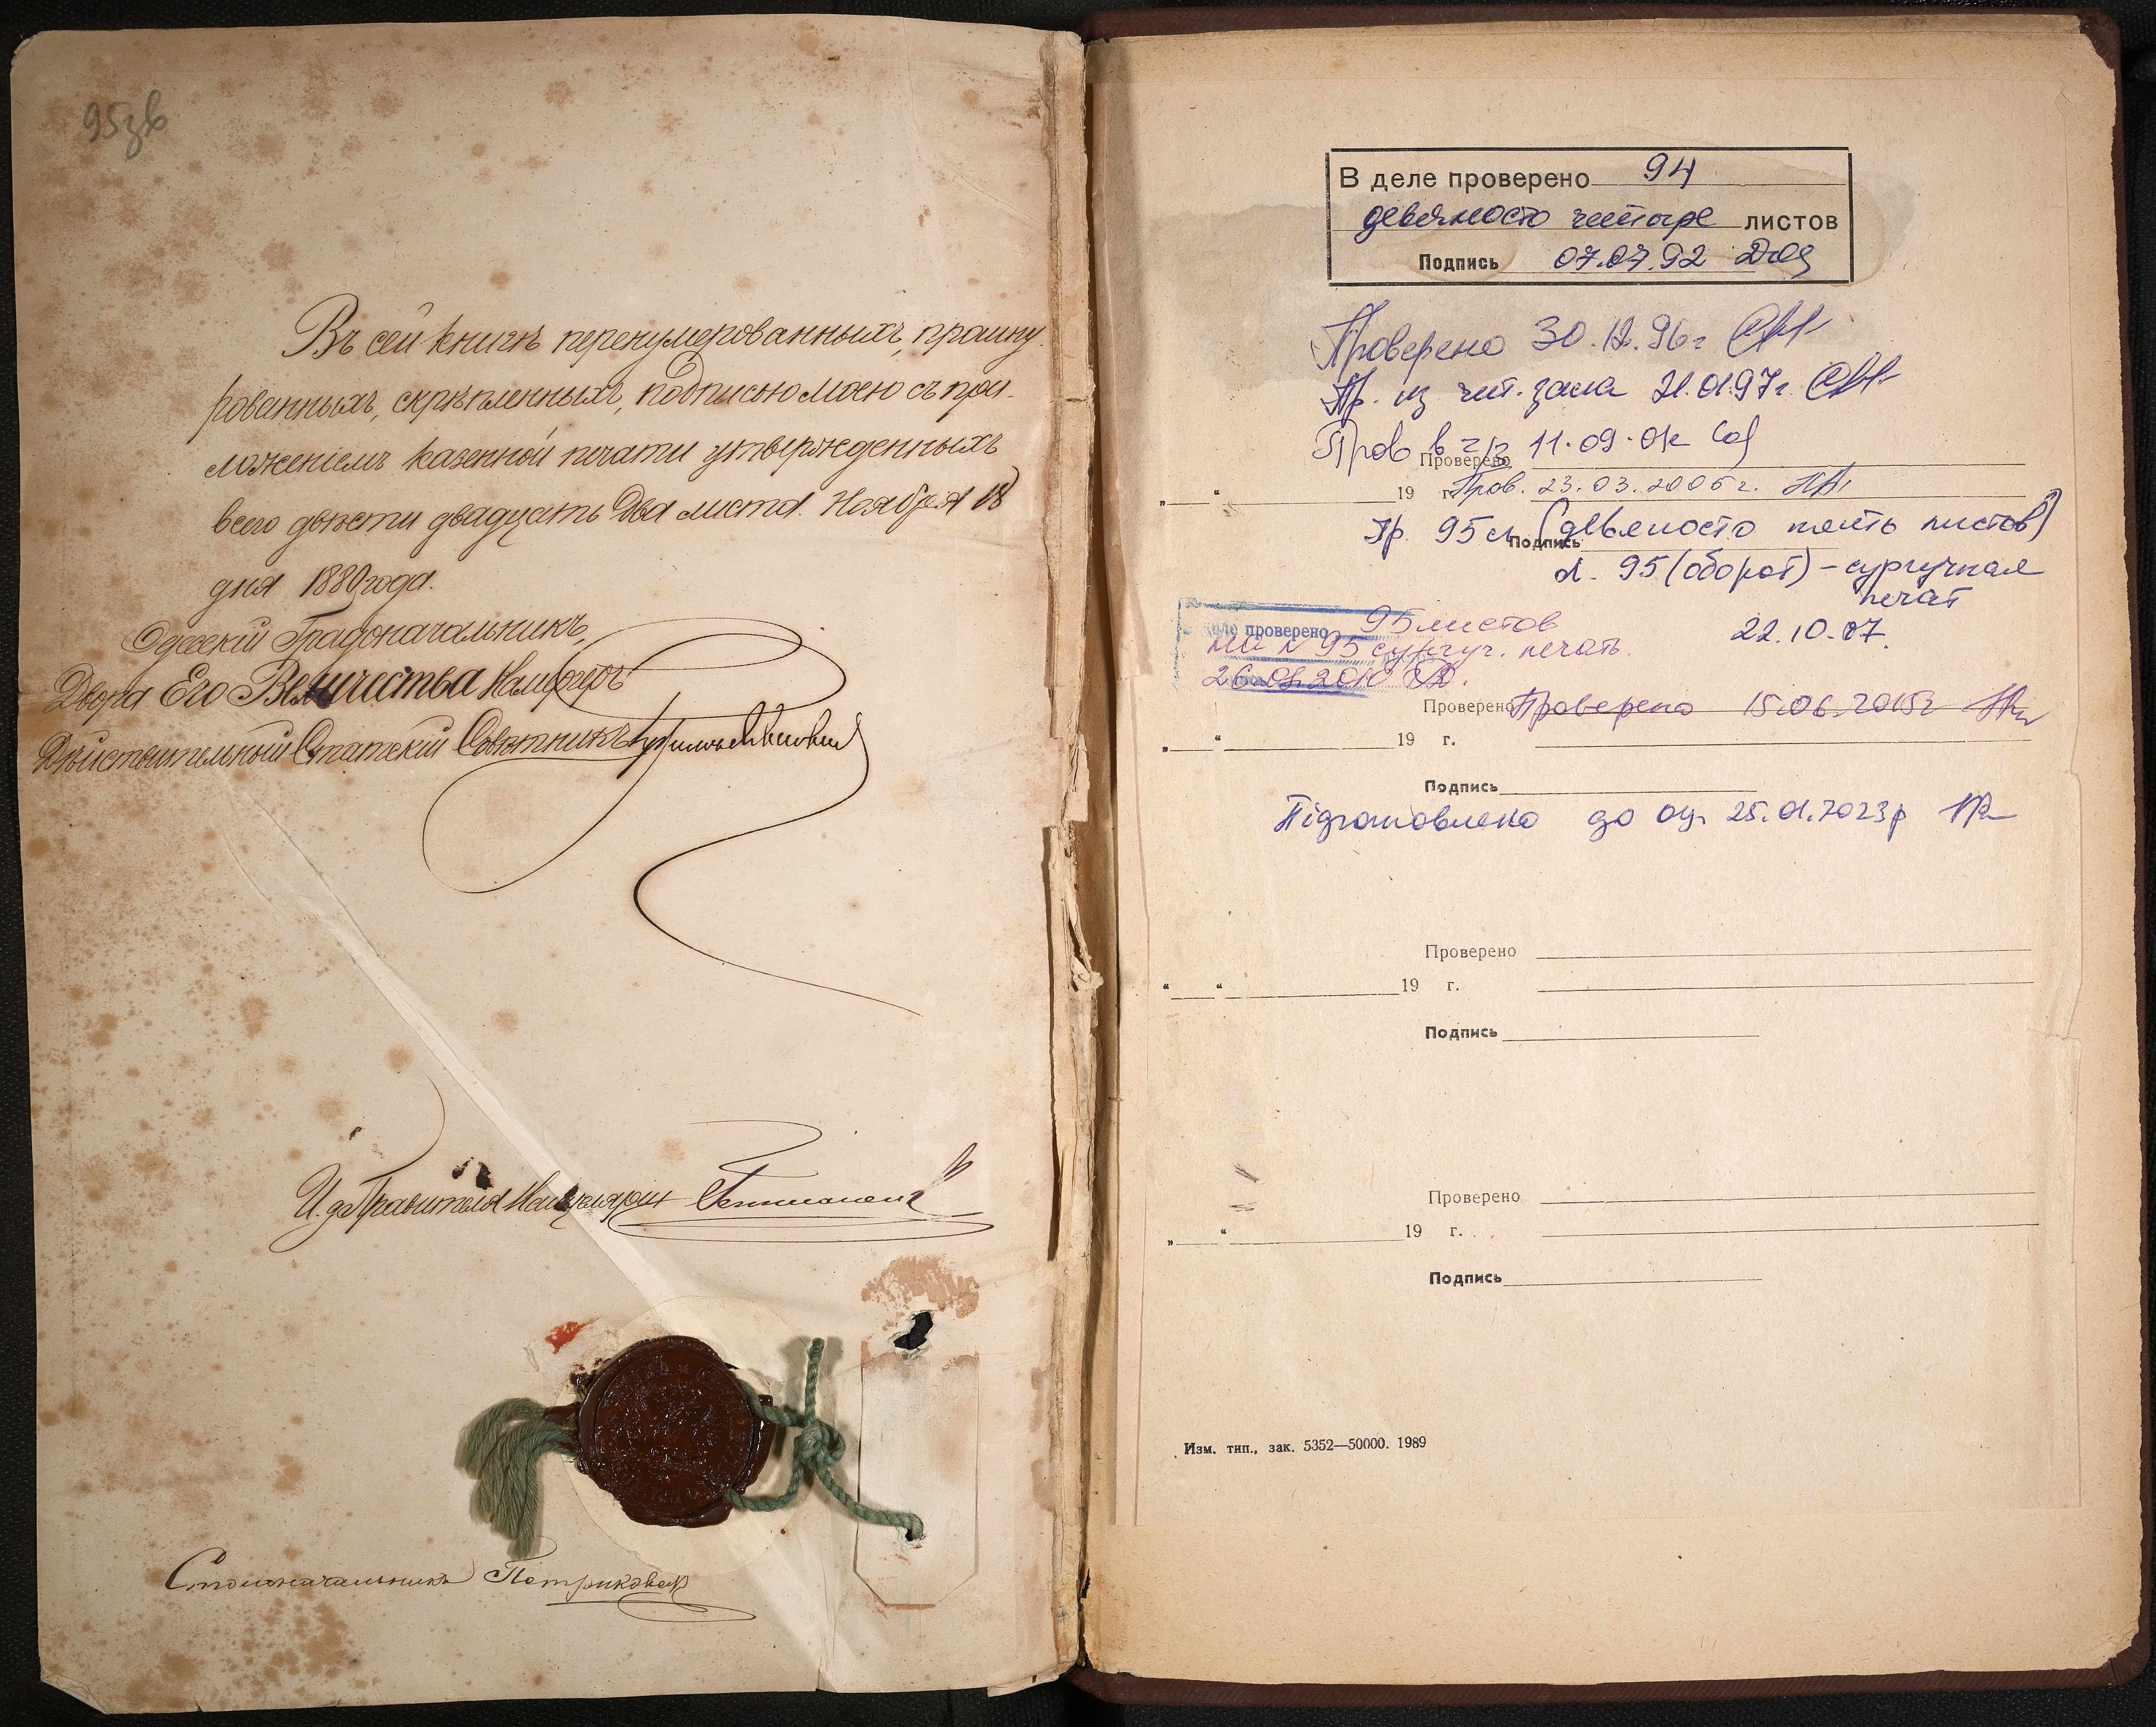 95зв
Въ сей книгѣ перенумерованныхъ, прошну-
рованныхъ, скрѣпленныхъ, подписью моею съ при-
ложеніемъ казенной печати утвержденныхъ
всего двѣсти двадцать два листа. Ноября 18
дня 1880 года.
Одесскій Градоначальникъ,
Двора Его Величества Камергеръ
Дѣйствительный Статскій Совѣтникъ
И. д. Правителя Канцеляріи
Столоначальникъ Петриковск
В деле проверено 94
девяносто четыре листов
Подпись 07.07.92
Проверено 30.12.96г
Пр. из чит. зала 21.01.97г.
Пров в ч/з 11.09.0
Проверено
„ “ 19 г. Пров. 23.03.2006 г.
Пр. 95 л. (девяносто пять листов)
Подпись
л. 95 (оборот) – сургучная
печат
22.10.07.
В деле проверено 95 листов
на л 95 сургуч. печать.
26.01.2010
Проверено Проверено 15.06.2015г
„ “ 19 г.
Подпись
Підготовлено до оц. 25.01.2023р
Проверено
“ “ 19 г.
Подпись
Проверено
„ “ 19 г.
Подпись
Изм. тип., зак. 5352—50000. 1989